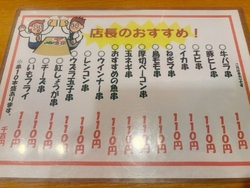 店長のおすすめ！
○牛バラ串　110円
○豚ヒレ串　110円
○エビ串　110円
○イカ串　110円
○ねぎマ串　110円
○鳥もも串　110円
○厚切ベーコン串　110円
○玉ネギ串　110円
○おすすめの魚串　110円
○ウインナー串　110円
○レンコン串　110円
○ウズラ玉子串　110円
○紅しょうが串　110円
○チーズ串　110円
○いもフライ　110円